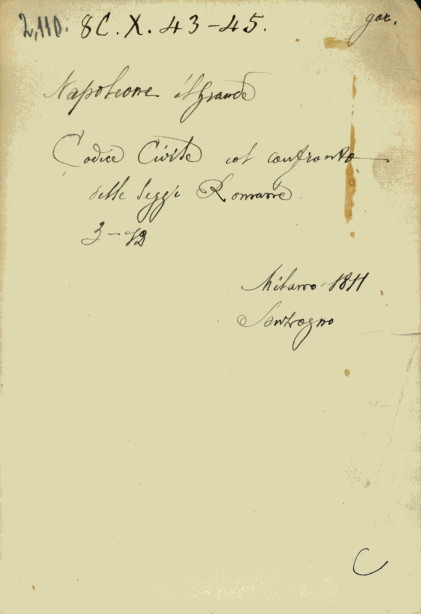 2,110. 8C. X. 43-45.
Napoleone il Grande
Codice Civile col confronto
delle leggi Romane
3-12
Milano 1811
Sonzogno
C